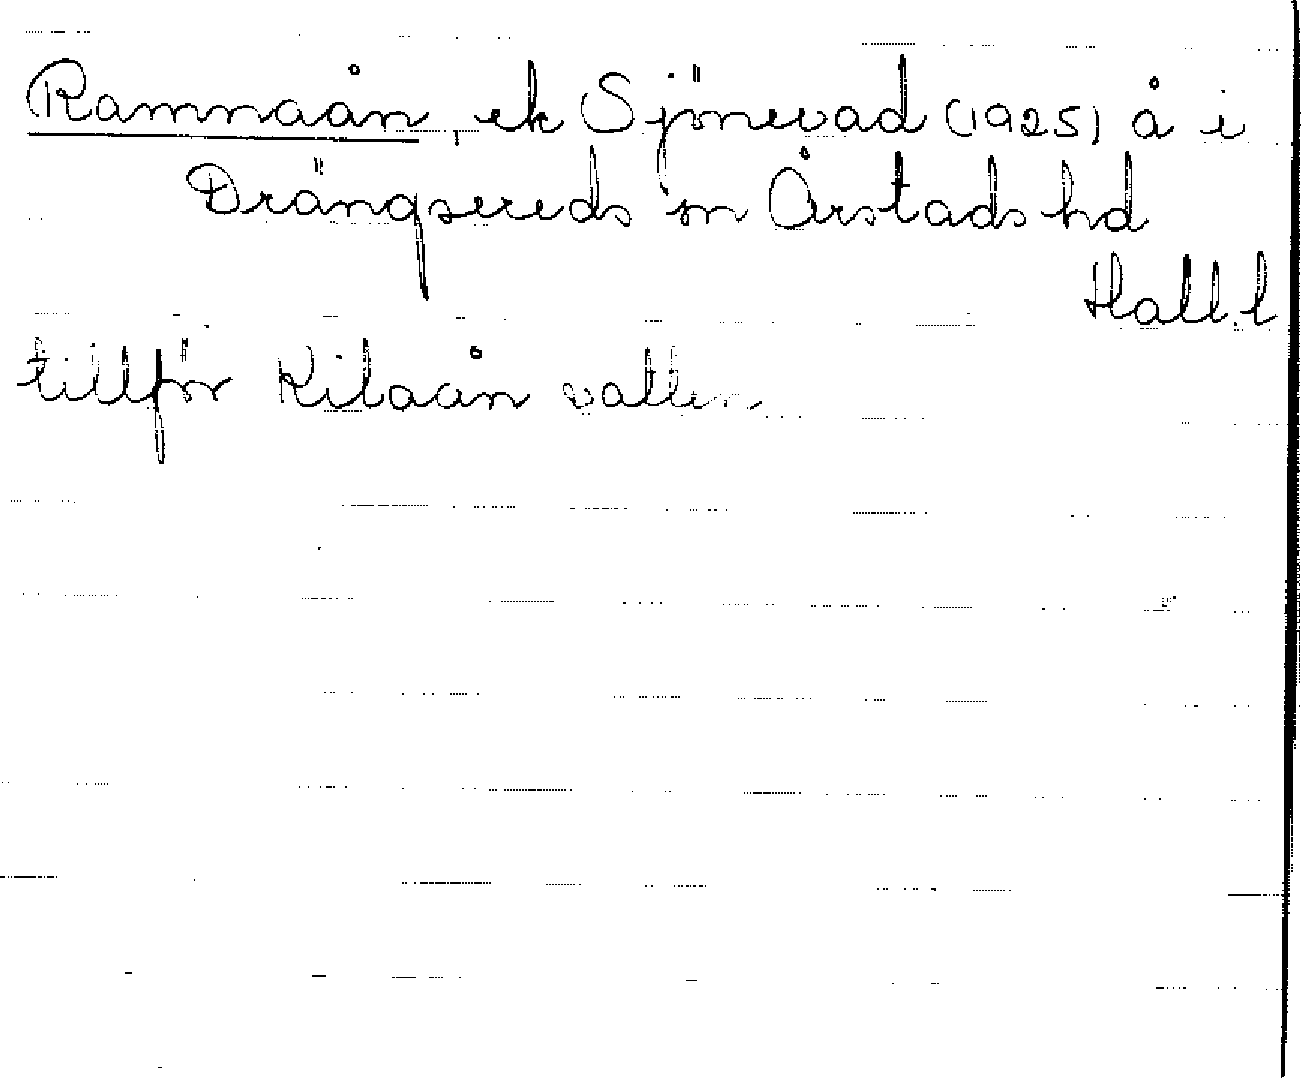 Ramnaån, ek Sjönevad (1925) å i
Drängsereds sn Årstads hd
Hall. l
tillför Kilaån vatten